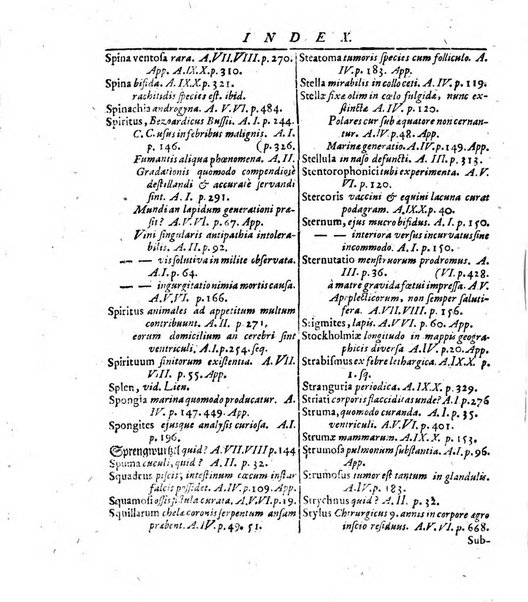 INDEX.
Spina ventosa rara. A.VII.VIII.p.270.
App. A.IX.X.p.310.
Spina bifida. A.IX.X.p.321.
rachitudis species est. ibid.
Spinachia androgyna. A.V.VI.p.484.
Spiritus, Bezoardicus Bussii. A.I.p.244.
C.C. usus in febribus malignis. A.I.
p. 146. (p.326.
Fumantis aliqua phœnomena. A.II.
Gradationis quomodo compendiosè
destillandi & accuratè servandi
sint. A.I.p.291.
Mundi an lapidum generationi præ-
sit? A.V.VI.p.67. App.
Vini singularis antipathia intolera-
bilis. A.II.p.92.
— — vis solutiva in milite observata.
A.I.p.64.
— — ingurgitatio nimia mortis causa.
A.V.VI. p. 166.
Spiritus animales ad appetitum multum
contribuunt. A.II. p. 271,
eorum domicilium an cerebri sint
ventriculi. A.I.p.254.seq.
Spirituum finitorum existentia. A.VII.
VIII. p. 55. App.
Splen, vid. Lien.
Spongia marina quomodo producatur. A.
IV.p. 147. 449. App.
Spongites ejusque analysis curiosa. A.I.
p. 196.
Sprengwurtzl quid? A.VII.VIII p.144
Spuma cuculi, quid? A. II. p. 32.
Squadrus piscis, intestinum cœcum instar
falcis possidet. A.IV.p.109. App.
Squamosi ossis fistula curata. A.V.VI.p.20.
Squillarum chelæ coronis serpentum ansam
præbent. A.IV.p.49. 51.
Steatoma tumoris species cum folliculo. A.
IV.p. 183. App.
Stella mirabilis in collo ceti. A.IV.p.119.
Stellæ fixæ olim in cœlo fulgidæ, nunc ex-
stinctæ A.IV.p. 120.
Polares cur sub æquatore non cernan-
tur. A.IV.p.48. App.
Marinæ generatio. A.IV.p.149. App.
Stellula in naso defuncti. A. II. p. 313.
Stentorophonici tubi experimenta. A. V.
VI. p. 120.
Stercoris vaccini & equini lacuna curat
podagram. A.IX.X.p. 40.
Sternum, ejus mucro bifidus. A.I. p. 150.
— — interiora versus incurvatus sine
incommodo. A. I. p. 150.
Sternutatio menstruorum prodromus. A.
III. p. 36. (VI.p.428.
à matre gravida fœtui impressa. A V.
Apoplecticorum, non semper saluti-
fera. A.VII.VIII. p. 156.
Stigmites, lapis. A.V.VI. p. 60. App.
Stockholmiæ longitudo in mappis geogra-
phicis diversa A.IV.p.20. App.
Strabismus ex febre lethargica. A.IX.X. p.
1. sq.
Stranguria periodica. A.IX.X. p. 329.
Striati corporis flacciditas unde? A.I p 276
Struma, quomodo curanda. A.I. p. 35.
ventriculi. A.V.VI. p. 401.
Strumæ mammarum. A.IX.X. p. 153.
Strumosa pulmonum substantia. A.I.p.96.
App.
Strumosus tumor est tantum in glandulis.
A.IV. p. 183.
Strychnus quid? A. II. p. 32.
Stylus Chirurgicus 9. annis in corpore agro
inscio residuus. A.V.VI. p. 668.
Sub-